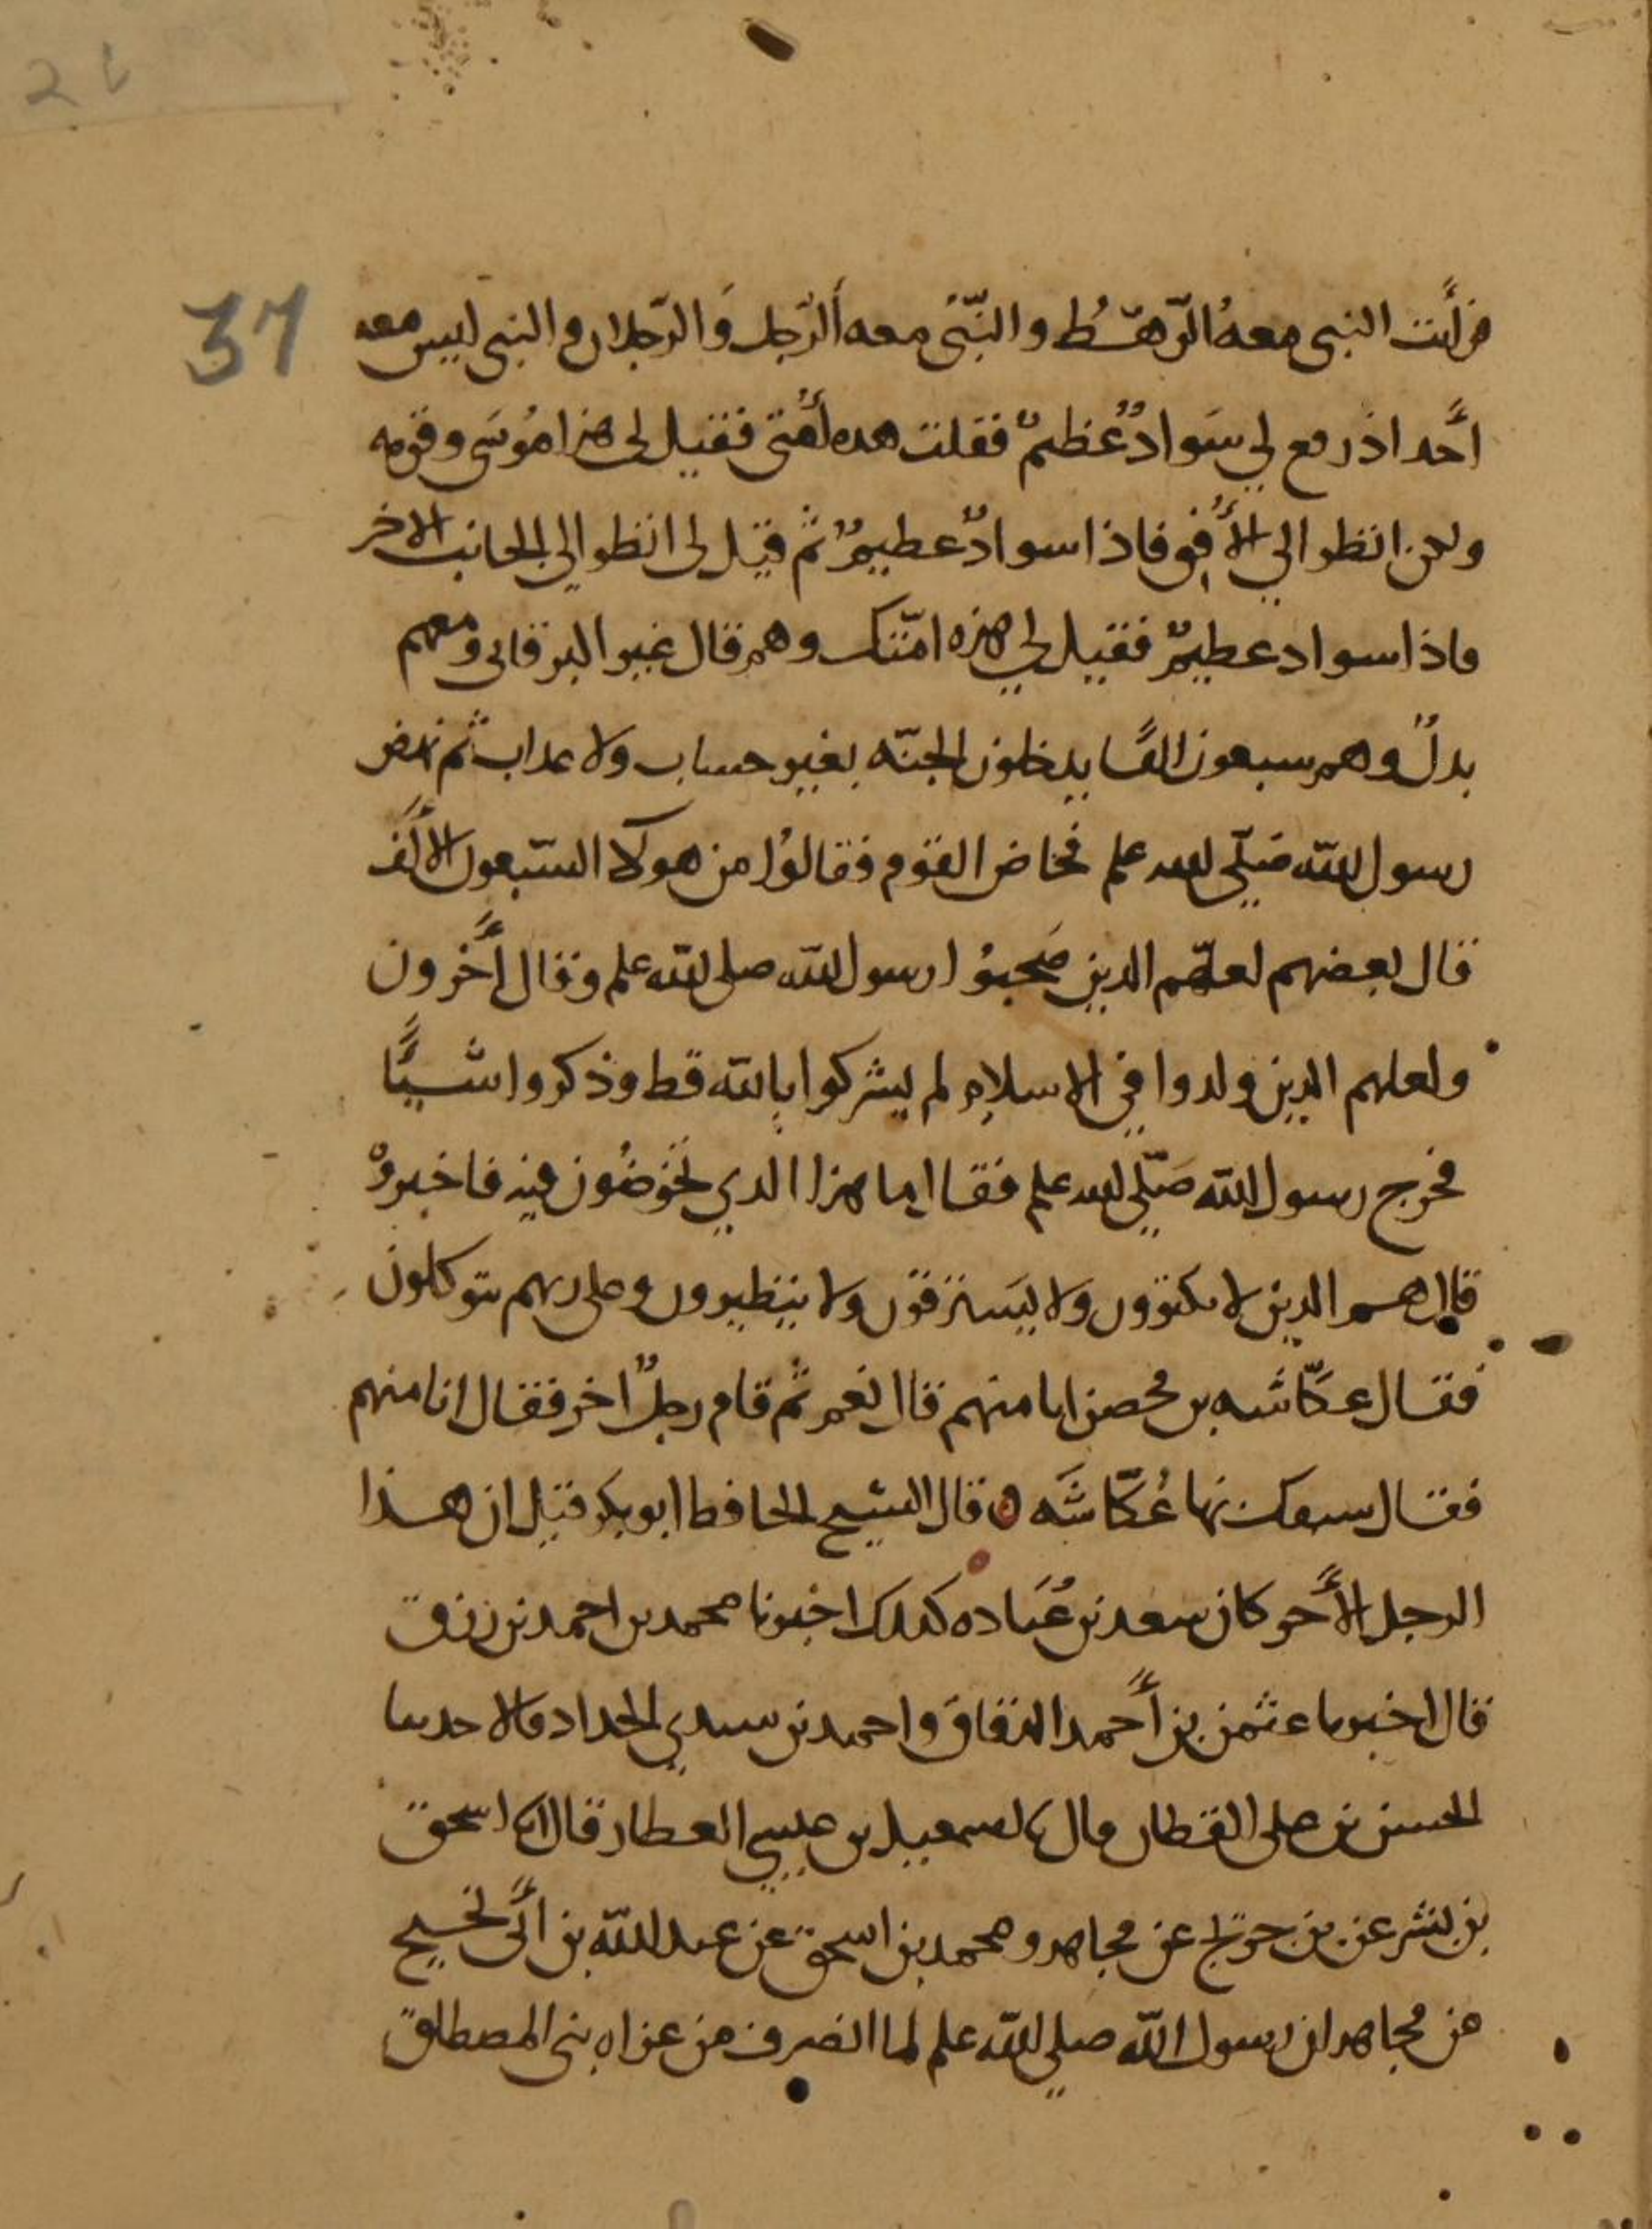 37
فرأيت النبى معه الرّهطُ والنّبىّ معه الرّجل وَالرّجلان والنبى ليس معه
أَحد اذ رفع لي سَوادٌ عُظمٌ فقلت هده أُمتى فقيل لى هذا مُوسَى وقومه
ولكن انظر الي الأُفِق فاذا سوادٌ عظيمٌ ثم قيل لى انظر الي الجانب الاخر
فاذا سواد عظيمٌ فقيل لي هذه امّتك وهم قال غير البرقانى ومعهم
بدلٌ وهم سبعون الفًا يدخلون الجنّه بغير حساب ولا عداب ثم نهض
رسول الله صَلّي الله علم فخاض القوم فقالوُا من هولا السّبعون الأَلَف
قال بعضهم لعلّهم الدين صَحبوُا رسول الله صلى الله علم وقال أَخرون
ولعلهم الدين ولدوا في الاسلام لم يشركوا بالله قط وذكروا اشيًّا
فخرج رسول الله صَلّي الله علم فقال ما هذا الدي تخَوضُون فيه فاخبروْ
قال هم الدين لا يكتوون ولا يَسترقون ولا يتطيرون وعلى ربهم يتوكلون
فقال عكّاشه بن محصن انا منهم قال نعم ثم قام رجلٌ اخر فقال انا منهم
فقال سبقك بها عُكّاشَه قال الشيح الحافظ ابو بكر قيل ان هذا
الرجل الأَخر كان سعد بن عُبَاده كدلك اخبرنا محمد بن احمد بن رزق
قال اخبرنا عثمن بن أَحمد الدقاق واحمد بن سندي الحداد قالا حدثنا
الحسن بن على القطان قال نا اسمعيل بن عيسي العطار قال انا اسحق
بن بشر عن بن جريج عن مجاهد ومحمد بن اسحق عن عبد الله بن أَبى نجيح
عن مجاهد ان رسول الله صلي الله علم لما انصرف من غزاه بنى المصطلق